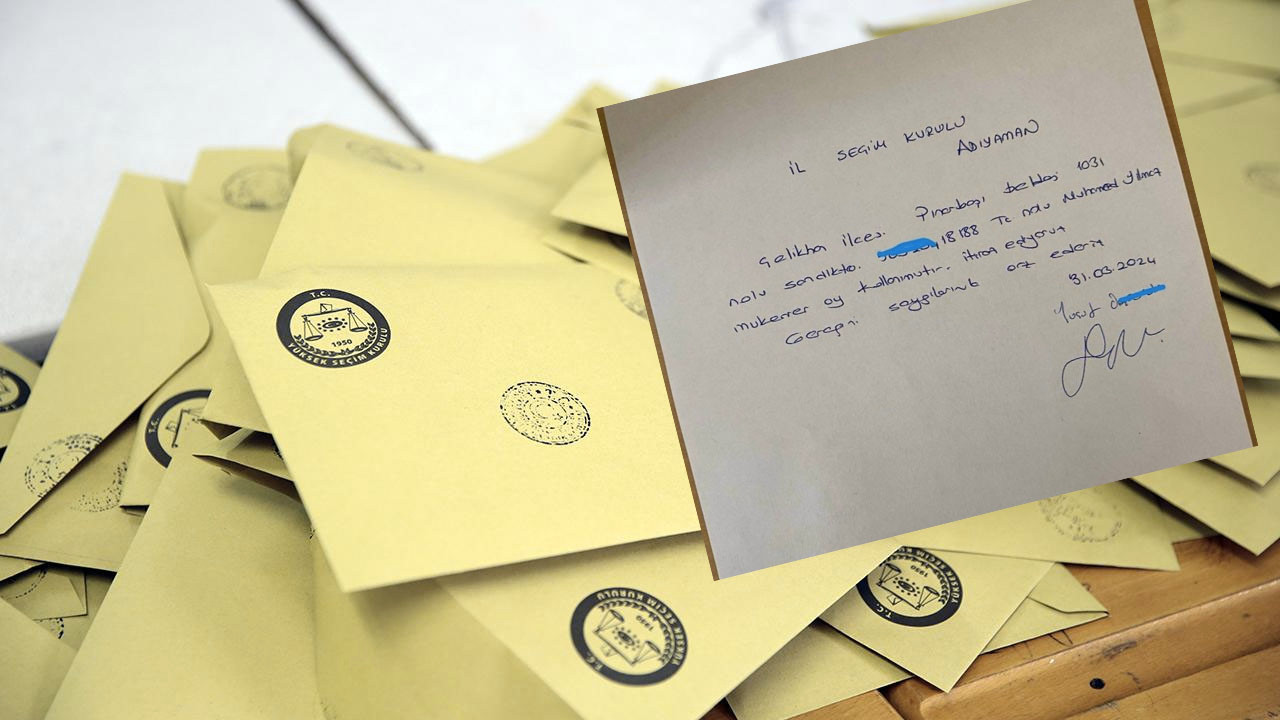 T.C.
1950
YÜKSEK SEÇİM KURULU
İL SEÇİM KURULU
ADIYAMAN
Çelikhan ilçesi Pınarbaşı beldesi 1031
nolu sandıkta 18188 Tc nolu Muhamed Yılmaz
mükerrer oy kullanmıştır. itiraz ediyoruz
Gereğini saygılarımla arz ederiz
31.03.2024
Yusuf
T.C.
1950
YÜKSEK SEÇİM KURULU
T.C.
1950
YÜKSEK SEÇİM KURULU